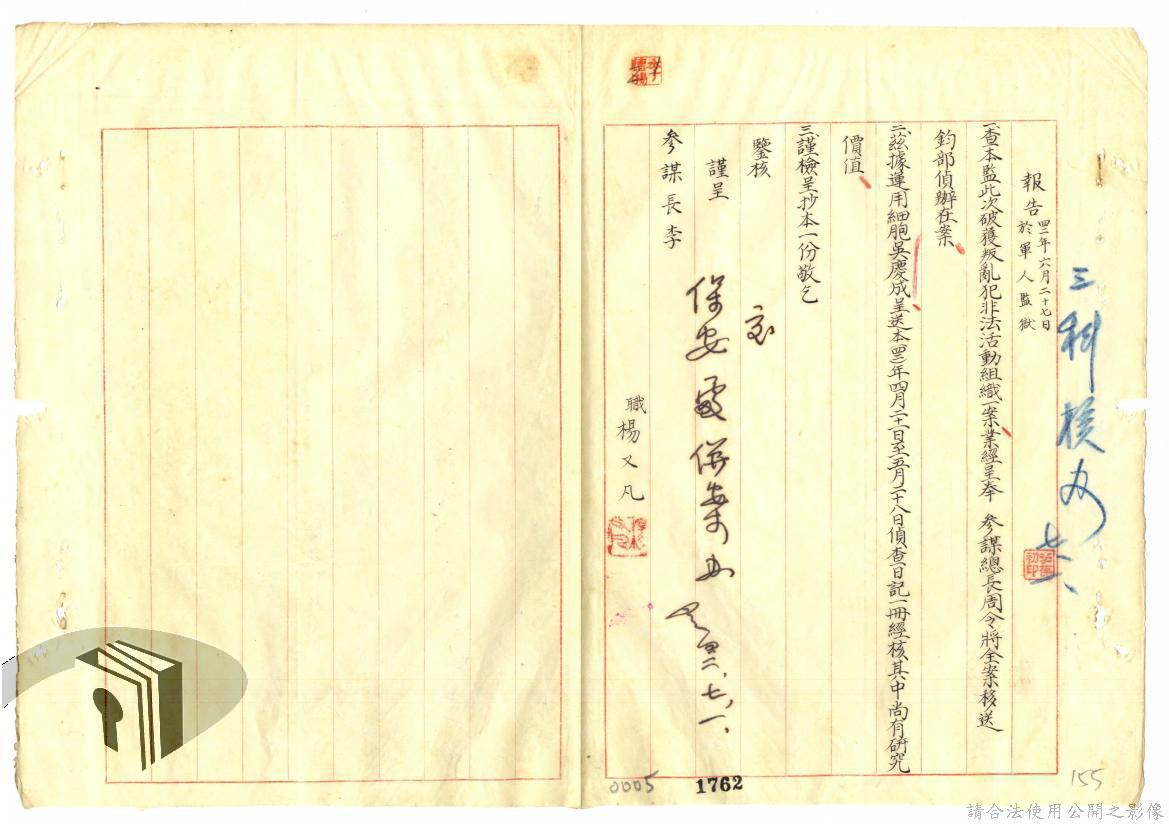 三科核办
七、一、
報告 四二年六月二十七日
於軍人監獄
一、查本監此次破獲叛亂犯非法活動組織一案業經呈奉 參謀總長周令將全案移送
鈞部偵辦在案
二、茲據運用細胞吳慶成呈送本(四二)年四月二十一日至五月二十八日偵查日記一冊經核其中尚有研究
價值
三、謹檢呈抄本一份敬乞
鑒核
謹呈
參謀長李
職楊又凡
保安處併案办
四二、七、一、
0005
1762
155
請合法使用公開之影像